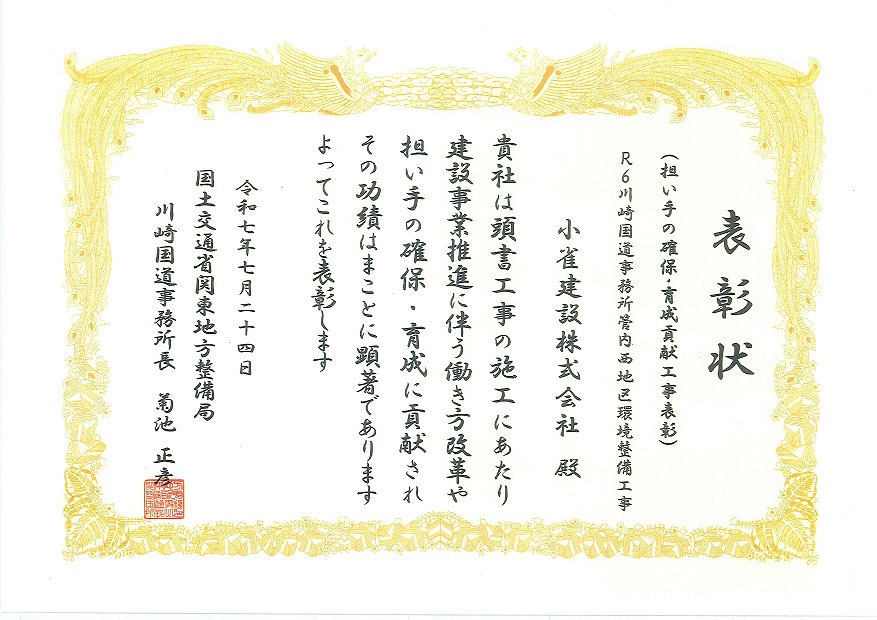 表彰状
(担い手の確保・育成貢献工事表彰)
R6川崎国道事務所管内西地区環境整備工事
小雀建設株式会社 殿
貴社は頭書工事の施工にあたり
建設事業推進に伴う働き方改革や
担い手の確保・育成に貢献され
その功績はまことに顕著であります
よってこれを表彰します
令和七年七月二十四日
国土交通省関東地方整備局
川崎国道事務所長 菊池 正彦